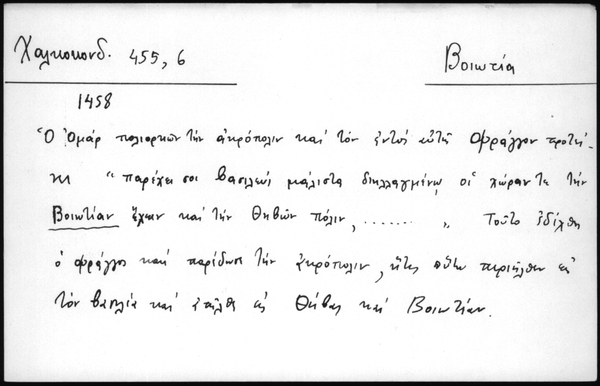 Χαλκοκονδ. 455, 6
Βοιωτία
1458
Ὁ Ὀμάρ πολιορκῶν τὴν ἀκρόπολιν καὶ τὸν ἐντός αὐτῆς Φράγγον προτεί-
νει "παρέχει σοι βασιλεύς μάλιστα διηλλαγμένῳ οἱ χώραν τε τὴν
Βοιωτίαν ἔχειν καὶ τὴν Θηβῶν πόλιν, ....... " Τοῦτο ἐδέχθη
ὁ φράγγος καὶ παρέδωσε τὴν ἀκρόπολιν, ἥτις οὕτω περιῆλθεν εἰς
τὸν βασιλέα καὶ ἀπῆλθε εἰς Θήβας καὶ Βοιωτίαν.